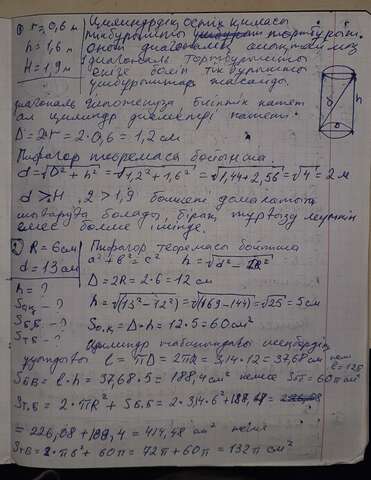 ① r=0,6 м
h=1,6 м
H=1,9 м
Цилиндрдің осьтік қимасы
тікбұрышты төртбұрыш.
Оның диагоналін анықтаймыз
диагональ төртбұрышты
екіге бөліп тік бұрышты
үшбұрыштар жасайды.
диагональ гипотенуза, биіктік катет
ал цилиндр диаметрі катет.
D=2r = 2·0,6 = 1,2 см
Пифагор теоремасы бойынша
d=√D²+h² = √1,2²+1,6² = √1,44+2,56 = √4 = 2 м
d>H, 2>1,9 болғаны домалатып
шығаруға болады, бірақ тұрғызу мүмкін
емес бөлме ішінде.
② R=6см
d=13см
h=?
Sо.қ -?
Sб.б -?
Sт.б -?
Пифагор теоремасы бойынша
a²+b²=c² h=√d²-D²
D=2R=2·6=12 см
h=√13²-12² = √169-144 = √25 = 5 см
Sо.қ = D·h = 12·5 = 60 см²
Цилиндр табанындағы шеңбердің
ұзындығы ℓ=πD=2πR=3,14·12=37,68 см немесе ℓ=12π
Sб.б = ℓ·h = 37,68·5 = 188,4 см² немесе Sб.б = 60π см²
Sт.б = 2·πR²+Sб.б = 2·3,14·6²+188,4 =
= 226,08+188,4 = 414,48 см² немесе
Sт.б = 2·π6²+60π = 72π+60π = 132π см²
h
D